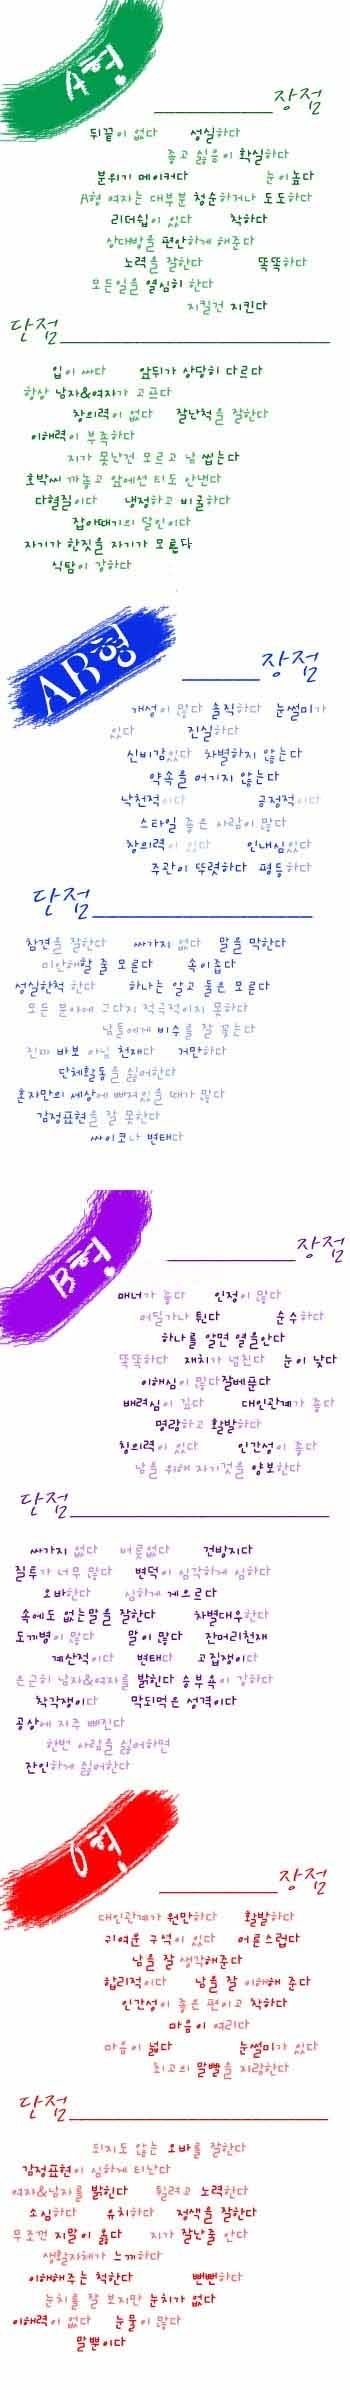 A형
장점
뒤끝이 없다 성실하다
좋고 싫음이 확실하다
분위기 메이커다 눈이높다
A형 여자는 대부분 청순하거나 도도하다
리더쉽이 있다 착하다
상대방을 편안하게 해준다
노력을 잘한다 똑똑하다
모든일을 열심히 한다
지킬건 지킨다
단점
입이 싸다 앞뒤가 상당히 다르다
항상 남자&여자가 고프다
창의력이 없다 잘난척을 잘한다
이해력이 부족하다
지가 못난건 모르고 남 씹는다
호박씨 까놓고 앞에선 티도 안낸다
다혈질이다 냉정하고 비굴하다
잡아떼기의 달인이다
자기가 한짓을 자기가 모른다
식탐이 강하다
AB형
장점
개성이 많다 솔직하다 눈썰미가
있다 진실하다
신비감있다 차별하지 않는다
약속을 어기지 않는다
낙천적이다 긍정적이다
스타일 좋은 사람이 많다
창의력이 있다 인내심있다
주관이 뚜렷하다 평등하다
단점
참견을 잘한다 싸가지 없다 말을 막한다
미안해할 줄 모른다 속이좁다
성실한척 한다 하나는 알고 둘은 모른다
모든 분야에 그다지 적극적이지 못하다
남들에게 비수를 잘 꽂는다
진짜 바보 아님 천재다 거만하다
단체활동을 싫어한다
혼자만의 세상에 빠져있을 때가 많다
감정표현을 잘 못한다
싸이코나 변태다
B형
장점
매너가 좋다 인정이 많다
어딜가나 튄다 순수하다
하나를 알면 열을안다
똑똑하다 재치가 넘친다 눈이 낮다
이해심이 많다잘베푼다
배려심이 깊다 대인관계가 좋다
명랑하고 활발하다
창의력이 있다 인간성이 좋다
남을 위해 자기것을 양보한다
단점
싸가지 없다 버릇없다 건방지다
질투가 너무 많다 변덕이 심각하게 심하다
오바한다 심하게 게으르다
속에도 없는말을 잘한다 차별대우한다
도끼병이 많다 말이 많다 잔머리천재
계산적이다 변태다 고집쟁이다
은근히 남자&여자를 밝힌다 승부욕이 강하다
착각쟁이다 막되먹은 성격이다
공상에 자주 빠진다
한번 사람을 싫어하면
잔인하게 싫어한다
O형
장점
대인관계가 원만하다 활발하다
귀여운 구석이 있다 어른스럽다
남을 잘 생각해준다
합리적이다 남을 잘 이해해 준다
인간성이 좋은 편이고 착하다
마음이 여리다
마음이 넓다 눈썰미가 있다
최고의 말빨을 자랑한다
단점
되지도 않는 오바를 잘한다
감정표현이 심하게 티난다
여자&남자를 밝힌다 튈려고 노력한다
소심하다 유치하다 정색을 잘한다
무조껀 지말이 옳다 지가 잘난줄 안다
생활자체가 느끼하다
이해해주는 척한다 뻔뻔하다
눈치를 잘 보지만 눈치가 없다
이해력이 없다 눈물이 많다
말뿐이다